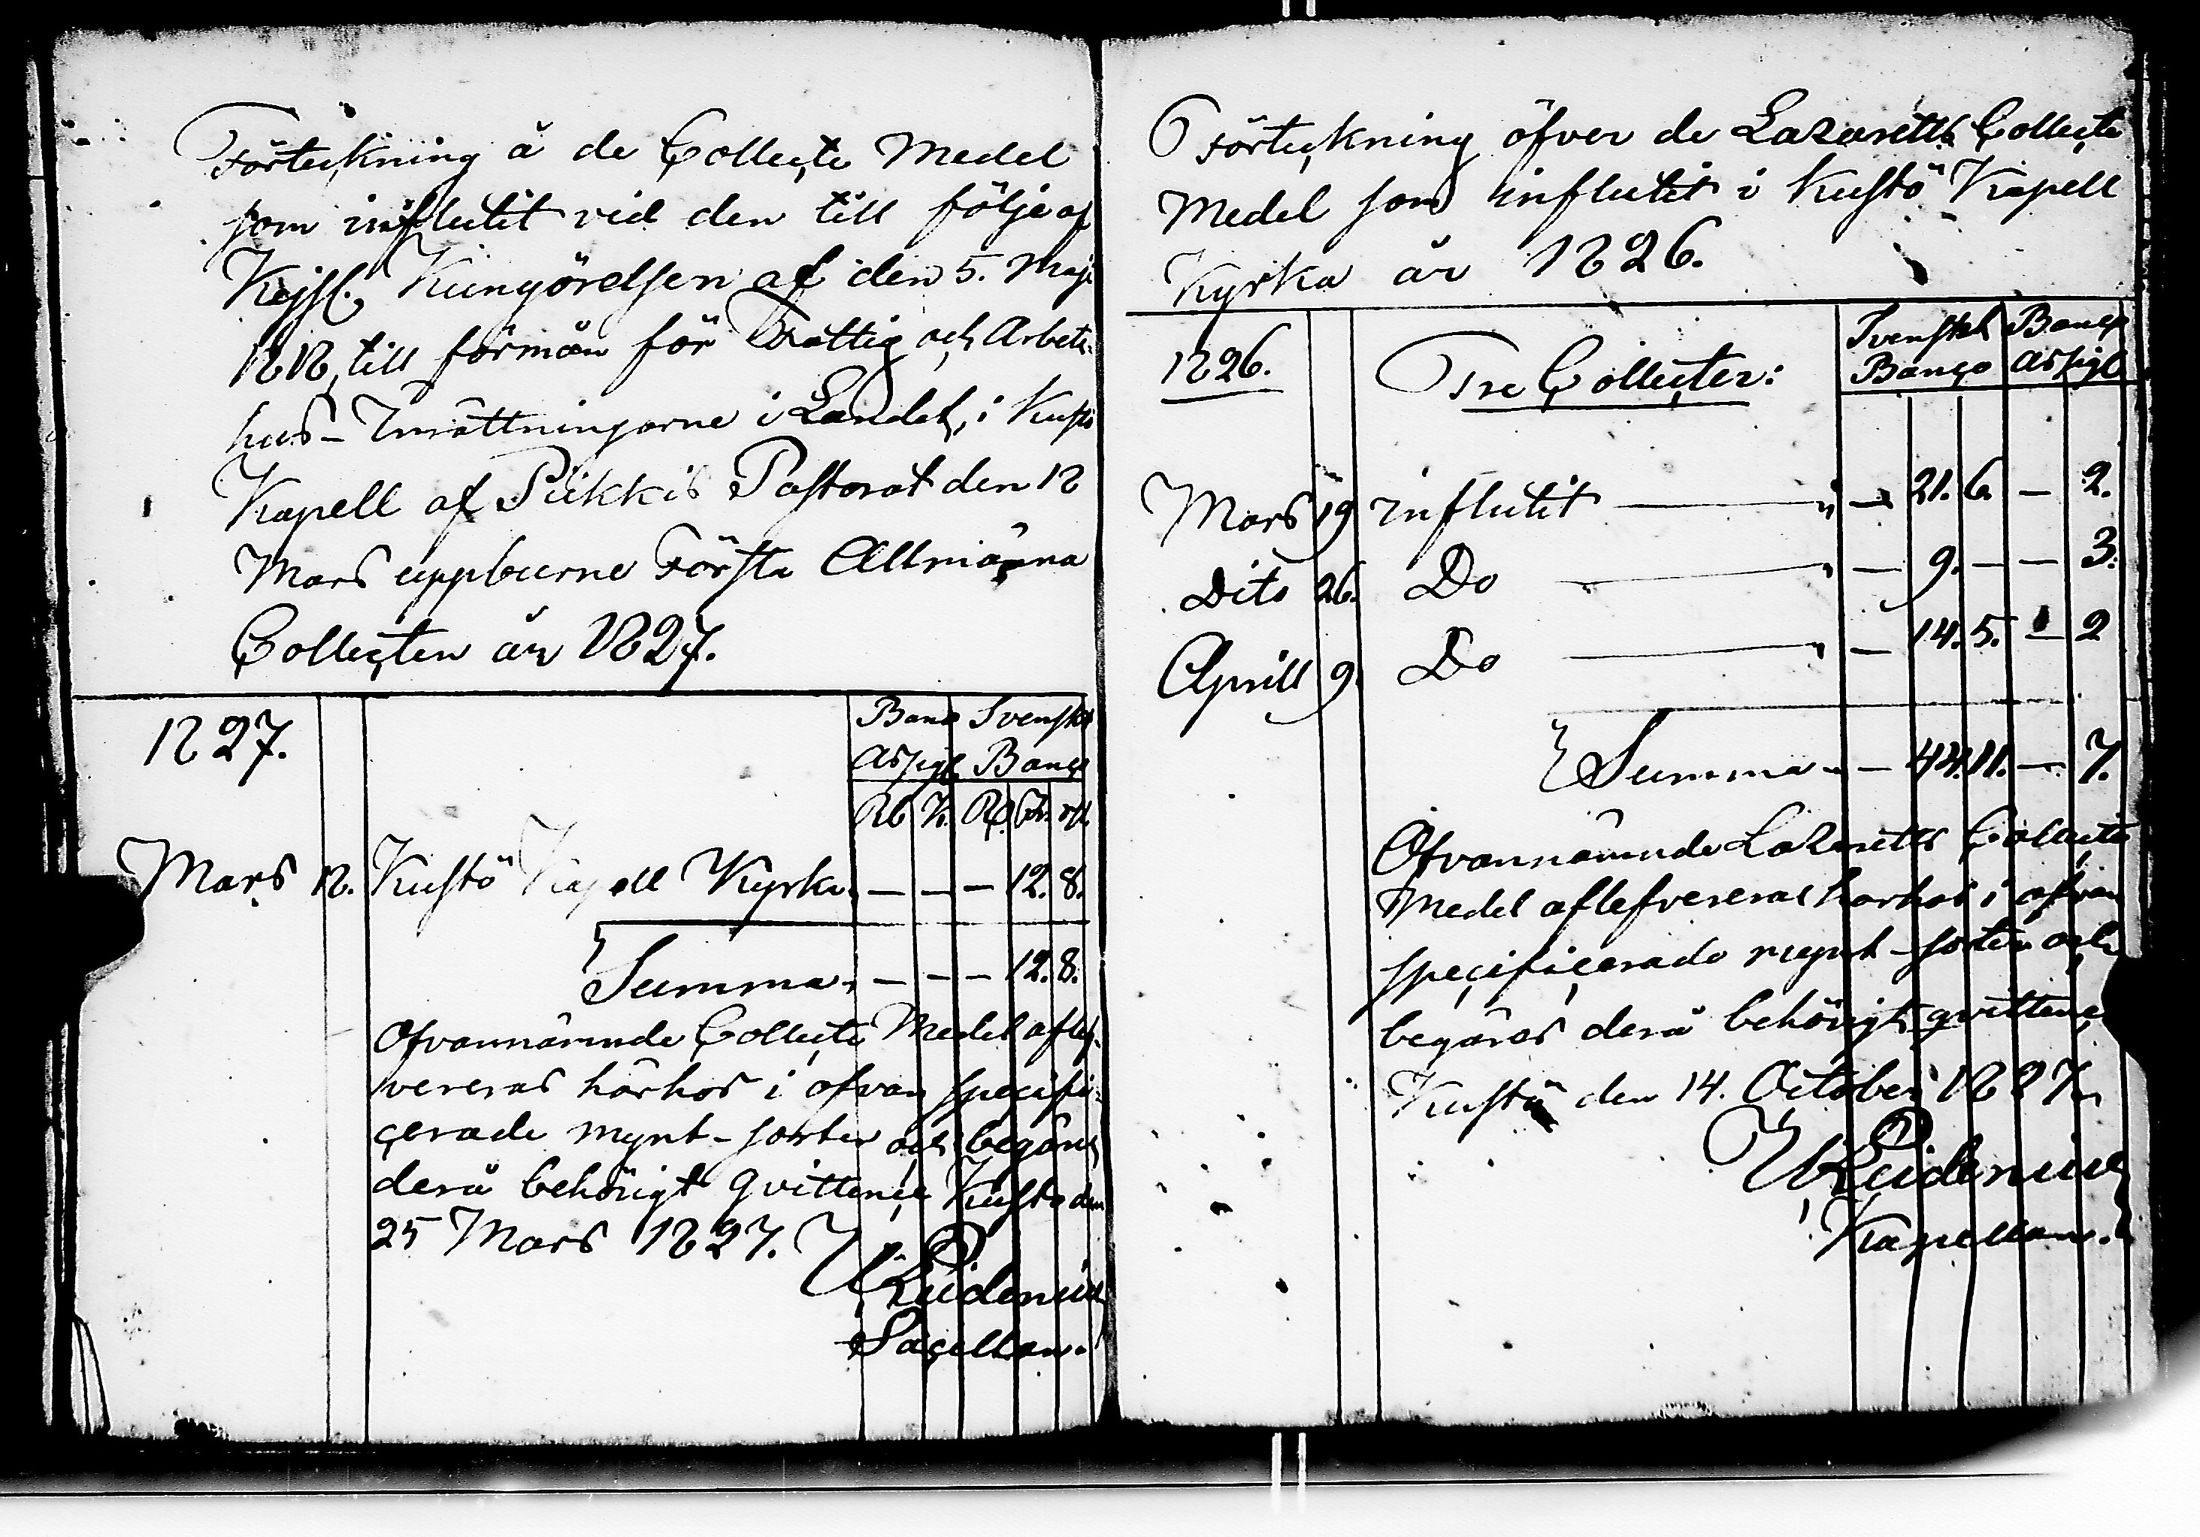 Förteckning å de Collecte Medel
som influtit vid den till följe af
Kejsl. Kungörelsen af den 5. Maji
1818, till förmån för Fattig och Arbets-
hus-Inrättningarne i Landet, i Kustö
Kapell af Pikkis Pastorat den 18
Mars uppburne Första Allmänna
Collecten år 1827.
1827.
Banco Svenskt
Assign Banco
Rb K. Rd. sk. rst.
Mars 18. Kustö Kapell Kyrka — — — 12. 8.
Summa — — — 12. 8.
Ofvannämnde Collecte Medel aflef-
vereras härhos i ofvan specifi-
cerade mynt-sorter och begäres
derå behörigt qvittence Kustö den
25 Mars 1827.
Reidenius
Sacellan.
Förteckning öfver de Lazaretts Collecte
Medel som influtit i Kustö Kapell
Kyrka år 1826.
1826. Tre Collecter: Svenskt Banco
Banco Assign
Mars 19 influtit — 21. 6. — 2.
Dito 26. Do — 9. — — 3.
Aprill 9. Do — 14. 5. — 2
Summa — 44. 11. — 7.
Ofvannämnde Lazaretts Collecte
Medel aflefvereras härhos i ofvan
specificerade mynt-sorter och
begäres derå behörigt qvittence
Kustö den 14. October 1827.
Reidenius
Kapellan.